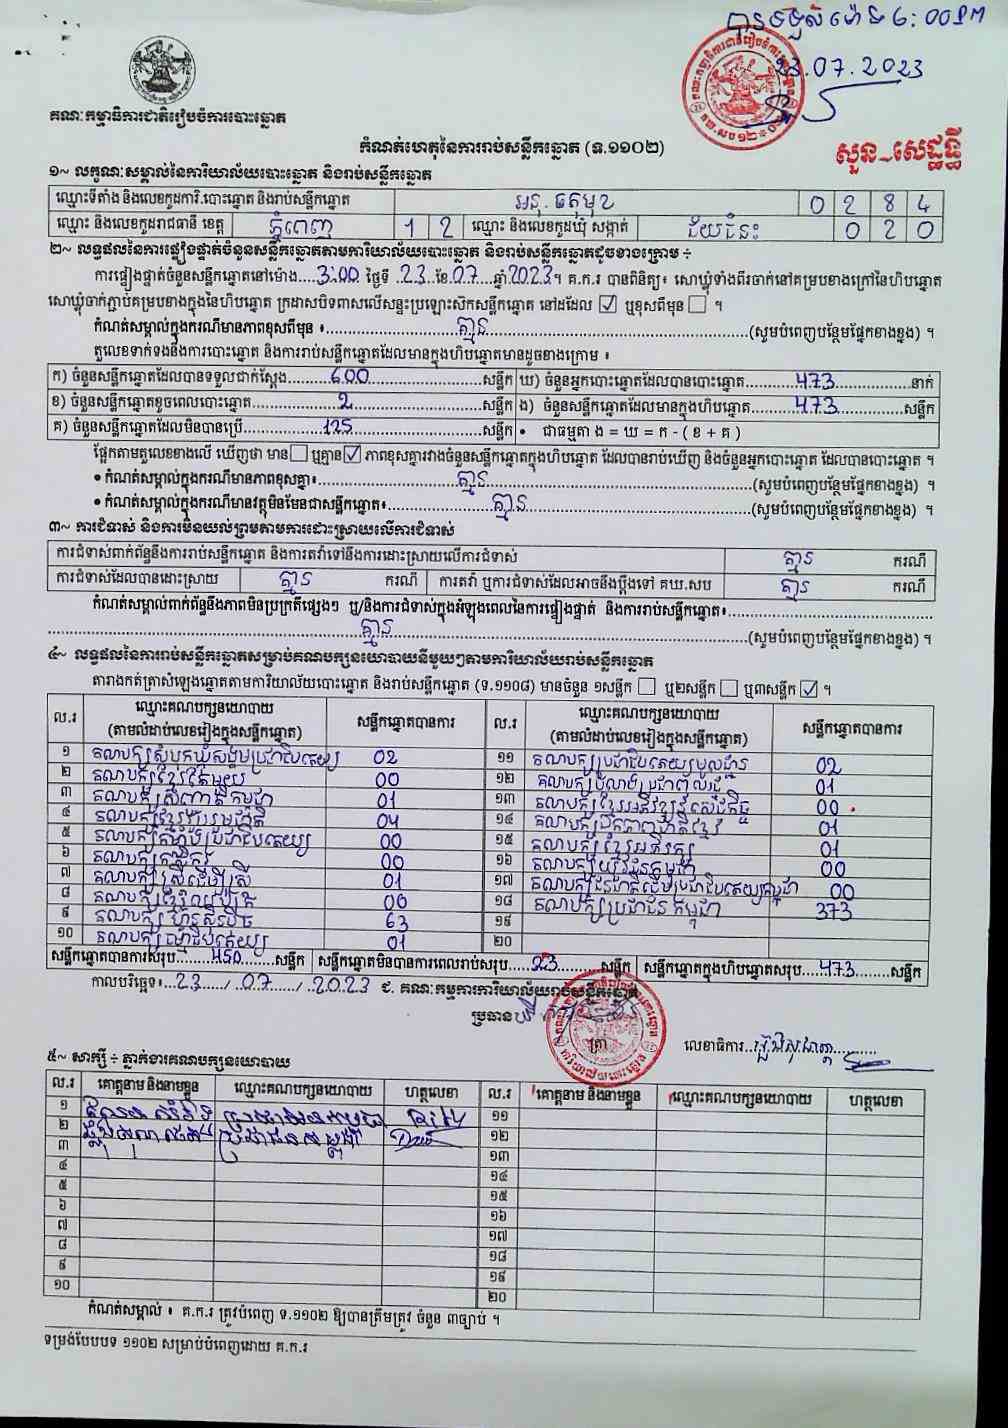 បានទទួលម៉ោង 6:00PM
23.07.2023
គណៈកម្មាធិការជាតិរៀបចំការបោះឆ្នោត
សួន-សេដ្ឋធី
កំណត់ហេតុនៃការរាប់សន្លឹកឆ្នោត (ទ.១១០២)
១~ លក្ខណៈសម្គាល់នៃការិយាល័យបោះឆ្នោត និងរាប់សន្លឹកឆ្នោត
ឈ្មោះទីតាំង និងលេខកូដការិ.បោះឆ្នោត និងរាប់សន្លឹកឆ្នោត អនុ. ធតមុខ 0 2 8 4
ឈ្មោះ និងលេខកូដរាជធានី ខេត្ត ភ្នំពេញ 1 2 ឈ្មោះ និងលេខកូដឃុំ សង្កាត់ ជ័យជំនះ 0 2 0
២~ លទ្ធផលនៃការផ្ទៀងផ្ទាត់ចំនួនសន្លឹកឆ្នោតតាមការិយាល័យបោះឆ្នោត និងរាប់សន្លឹកឆ្នោតដូចខាងក្រោម ÷
ការផ្ទៀងផ្ទាត់ចំនួនសន្លឹកឆ្នោតនៅម៉ោង 3:00 ថ្ងៃទី 23 ខែ 07 ឆ្នាំ 2023 ។ គ.ក.រ បានពិនិត្យ៖ សោឃ្លុំទាំងពីរចាក់នៅគម្របខាងក្រៅនៃហិបឆ្នោត
សោឃ្លុំចាក់ភ្ជាប់គម្របខាងក្នុងនៃហិបឆ្នោត ក្រដាសបិទពាសលើសន្ទះប្រឡោះសិកសន្លឹកឆ្នោត នៅដដែល ☑ ឬខុសពីមុន ☐ ។
កំណត់សម្គាល់ក្នុងករណីមានភាពខុសពីមុន ៖ គ្មាន (សូមបំពេញបន្ថែមផ្នែកខាងខ្នង) ។
តួលេខទាក់ទងនឹងការបោះឆ្នោត និងការរាប់សន្លឹកឆ្នោតដែលមានក្នុងហិបឆ្នោតមានដូចខាងក្រោម ៖
ក) ចំនួនសន្លឹកឆ្នោតដែលបានទទួលជាក់ស្តែង 600 សន្លឹក ឃ) ចំនួនអ្នកបោះឆ្នោតដែលបានបោះឆ្នោត 473 នាក់
ខ) ចំនួនសន្លឹកឆ្នោតខូចពេលបោះឆ្នោត 2 សន្លឹក ង) ចំនួនសន្លឹកឆ្នោតដែលមានក្នុងហិបឆ្នោត 473 សន្លឹក
គ) ចំនួនសន្លឹកឆ្នោតដែលមិនបានប្រើ 125 សន្លឹក • ជាធម្មតា ង = ឃ = ក - ( ខ + គ )
ផ្អែកតាមតួលេខខាងលើ ឃើញថា មាន ☐ ឬគ្មាន ☑ ភាពខុសគ្នារវាងចំនួនសន្លឹកឆ្នោតក្នុងហិបឆ្នោត ដែលបានរាប់ឃើញ និងចំនួនអ្នកបោះឆ្នោត ដែលបានបោះឆ្នោត ។
• កំណត់សម្គាល់ក្នុងករណីមានភាពខុសគ្នា៖ គ្មាន (សូមបំពេញបន្ថែមផ្នែកខាងខ្នង) ។
• កំណត់សម្គាល់ក្នុងករណីមានវត្ថុមិនមែនជាសន្លឹកឆ្នោត៖ គ្មាន (សូមបំពេញបន្ថែមផ្នែកខាងខ្នង) ។
៣~ ការជំទាស់ និងការមិនយល់ព្រមតាមការដោះស្រាយលើការជំទាស់
ការជំទាស់ពាក់ព័ន្ធនឹងការរាប់សន្លឹកឆ្នោត និងការតវ៉ាទៅនឹងការដោះស្រាយលើការជំទាស់ គ្មាន ករណី
ការជំទាស់ដែលបានដោះស្រាយ គ្មាន ករណី ការតវ៉ា ឬការជំទាស់ដែលអាចនឹងប្តឹងទៅ គឃ.សប គ្មាន ករណី
កំណត់សម្គាល់ពាក់ព័ន្ធនឹងភាពមិនប្រក្រតីផ្សេងៗ ឬ/និងការជំទាស់ក្នុងអំឡុងពេលនៃការផ្ទៀងផ្ទាត់ និងការរាប់សន្លឹកឆ្នោត៖
គ្មាន (សូមបំពេញបន្ថែមផ្នែកខាងខ្នង) ។
៤~ លទ្ធផលនៃការរាប់សន្លឹកឆ្នោតសម្រាប់គណបក្សនយោបាយនីមួយៗតាមការិយាល័យរាប់សន្លឹកឆ្នោត
តារាងកត់ត្រាសំឡេងឆ្នោតតាមការិយាល័យបោះឆ្នោត និងរាប់សន្លឹកឆ្នោត (ទ.១១០៨) មានចំនួន ១សន្លឹក ☐ ឬ២សន្លឹក ☐ ឬ៣សន្លឹក ☑ ។
ល.រ ឈ្មោះគណបក្សនយោបាយ (តាមលំដាប់លេខរៀងក្នុងសន្លឹកឆ្នោត) សន្លឹកឆ្នោតបានការ ល.រ ឈ្មោះគណបក្សនយោបាយ (តាមលំដាប់លេខរៀងក្នុងសន្លឹកឆ្នោត) សន្លឹកឆ្នោតបានការ
១ គណបក្សសំបុកឃ្មុំសង្គមប្រជាធិបតេយ្យ 02 ១១ គណបក្សប្រជាធិបតេយ្យមូលដ្ឋាន 02
២ គណបក្សខ្មែរតែមួយ 00 ១២ គណបក្សបំលាស់ប្រជាពលរដ្ឋ 01
៣ គណបក្សសញ្ជាតិកម្ពុជា 01 ១៣ គណបក្សខ្មែរអភិវឌ្ឍន៍សេដ្ឋកិច្ច 00
៤ គណបក្សខ្មែររួបរួមជាតិ 04 ១៤ គណបក្សឯកភាពជាតិខ្មែរ 01
៥ គណបក្សកម្លាំងប្រជាធិបតេយ្យ 00 ១៥ គណបក្សខ្មែរអភិរក្ស 01
៦ គណបក្សកសិករ 00 ១៦ គណបក្សយុវជនកម្ពុជា 00
៧ គណបក្សស្រ្តីដើម្បីស្រ្តី 01 ១៧ គណបក្សជនជាតិដើមប្រជាធិបតេយ្យកម្ពុជា 00
៨ គណបក្សខ្មែរឈប់ក្រ 06 ១៨ គណបក្សប្រជាជនកម្ពុជា 373
៩ គណបក្សហ៊្វុនស៊ិនប៉ិច 63 ១៩
១០ គណបក្សធម្មាធិបតេយ្យ 01 ២០
សន្លឹកឆ្នោតបានការសរុប 450 សន្លឹក សន្លឹកឆ្នោតមិនបានការពេលរាប់សរុប 23 សន្លឹក សន្លឹកឆ្នោតក្នុងហិបឆ្នោតសរុប 473 សន្លឹក
កាលបរិច្ឆេទ៖ 23 / 07 / 2023 ជ. គណៈកម្មការការិយាល័យរាប់សន្លឹកឆ្នោត
ប្រធាន លេខាធិការ
ត្រា
៥~ សាក្សី ÷ ភ្នាក់ងារគណបក្សនយោបាយ
ល.រ គោត្តនាម និងនាមខ្លួន ឈ្មោះគណបក្សនយោបាយ ហត្ថលេខា ល.រ គោត្តនាម និងនាមខ្លួន ឈ្មោះគណបក្សនយោបាយ ហត្ថលេខា
១ ប្រជាជនកម្ពុជា ១១
២ ប្រជាជនកម្ពុជា ១២
៣ ១៣
៤ ១៤
៥ ១៥
៦ ១៦
៧ ១៧
៨ ១៨
៩ ១៩
១០ ២០
កំណត់សម្គាល់ ៖ គ.ក.រ ត្រូវបំពេញ ទ.១១០២ ឱ្យបានត្រឹមត្រូវ ចំនួន ៣ច្បាប់ ។
ទម្រង់បែបបទ ១១០២ សម្រាប់បំពេញដោយ គ.ក.រ